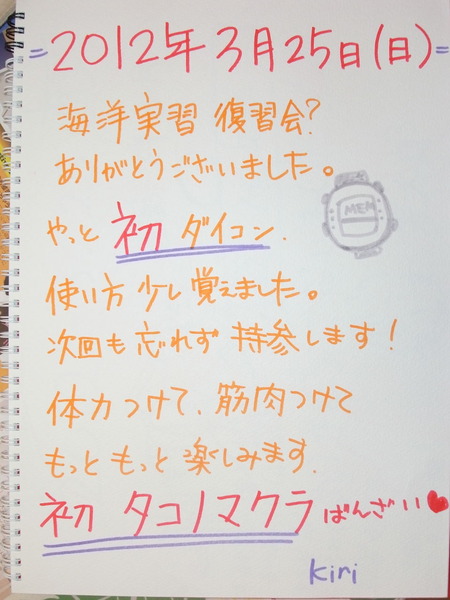 =2012年3月25日(日)=
海洋実習 復習会?
ありがとうございました。
MEM
やっと 初 ダイコン.
使い方 少し覚えました。
次回も忘れず 持参します!
体力つけて、筋肉つけて
もっと もっと 楽しみます.
初 タコノマクラ ばんざい♥
kiri